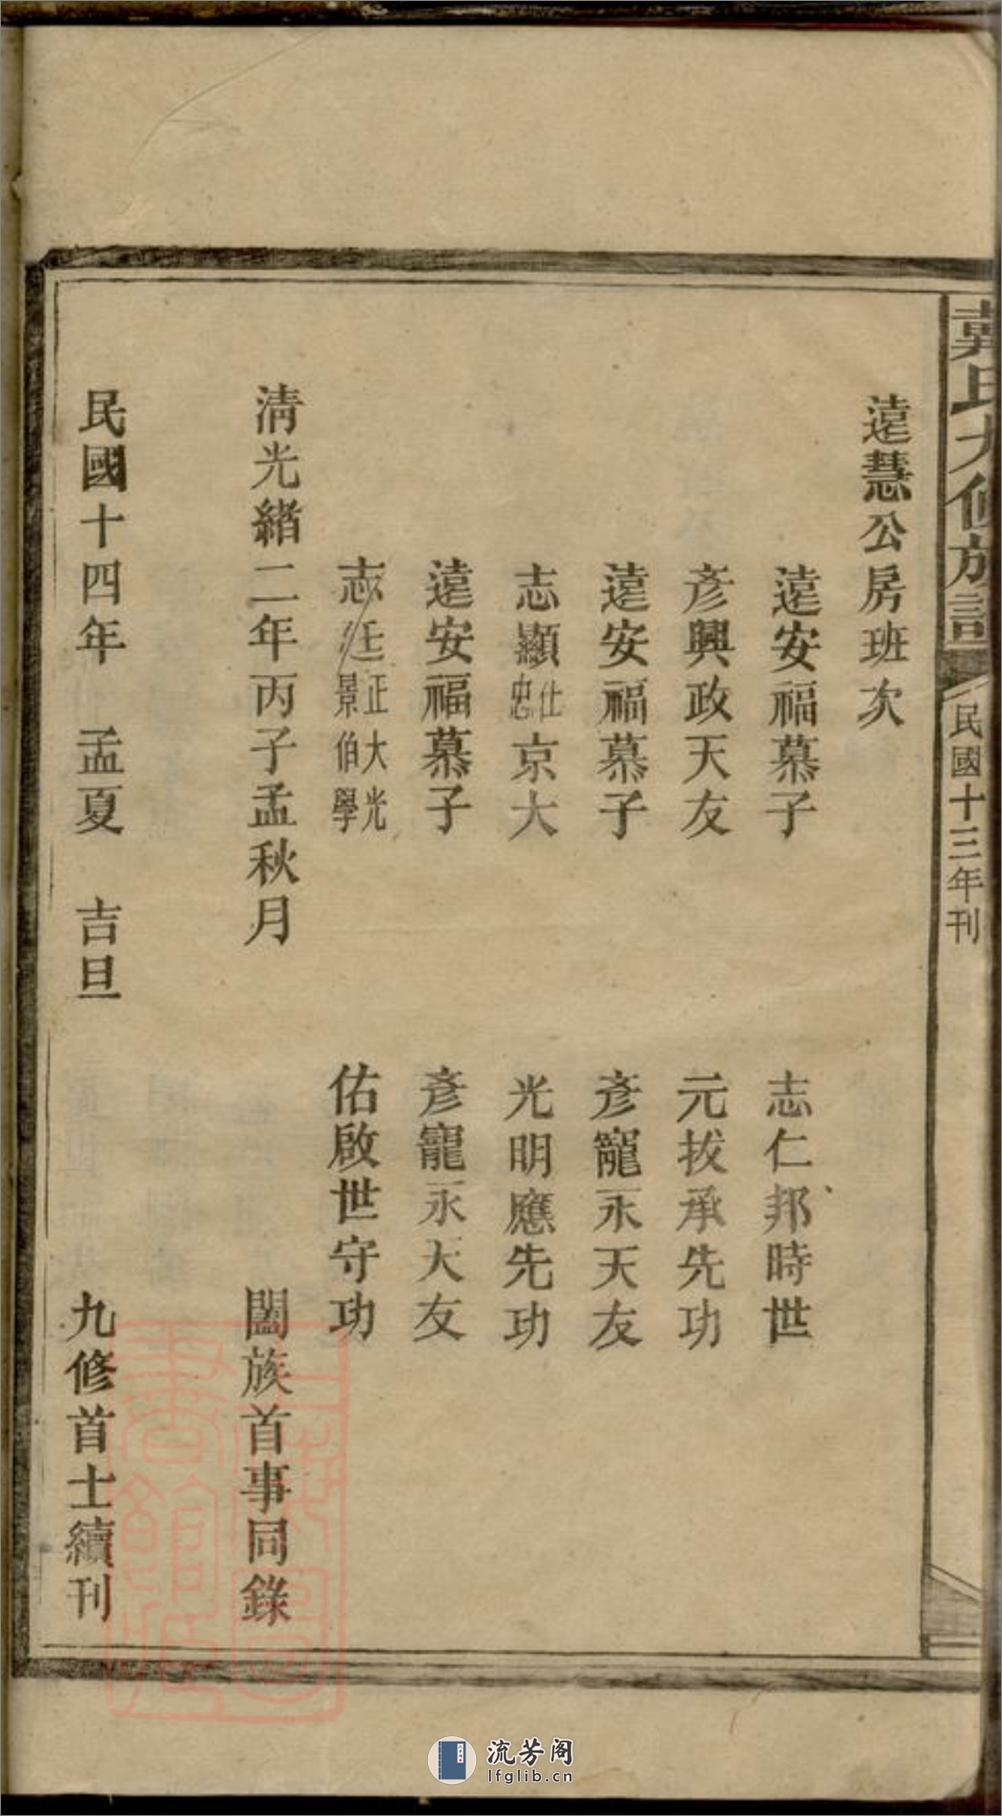 戴氏九修族譜
民國十三年刊
遠慧公房班次
遠安福慕子 志仁邦時世
彥興政天友 元拔承先功
遠安福慕子 彥寵永天友
志顯仕忠京大 光明應先功
遠安福慕子 彥寵永天友
志廷正大光景伯學 佑啟世守功
清光緒二年丙子孟秋月 闔族首事同錄
民國十四年 孟夏 吉旦 九修首士續刊
流芳阁
lfglib.cn